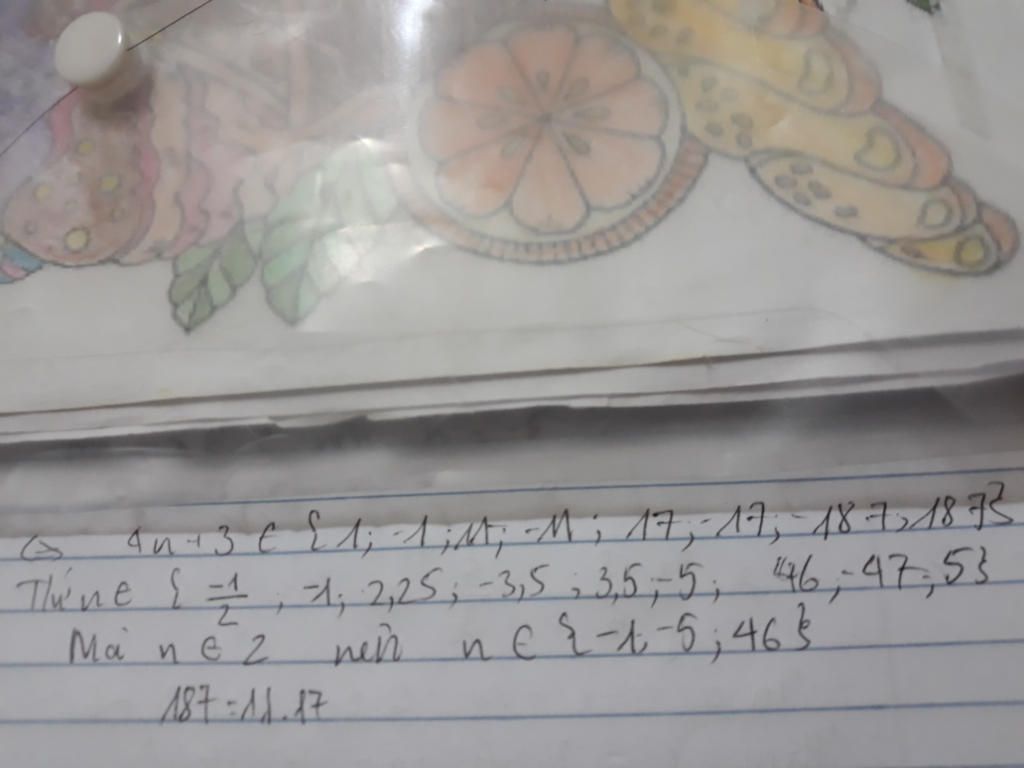 <=> 4n+3 ∈ {1; -1; 11; -11; 17; -17; -187; 187}
Thì n ∈ { -1/2 ; -1; 2,25; -3,5; 3,5; -5; 46; -47,5}
Mà n ∈ Z nên n ∈ {-1; -5; 46}
187 = 11.17